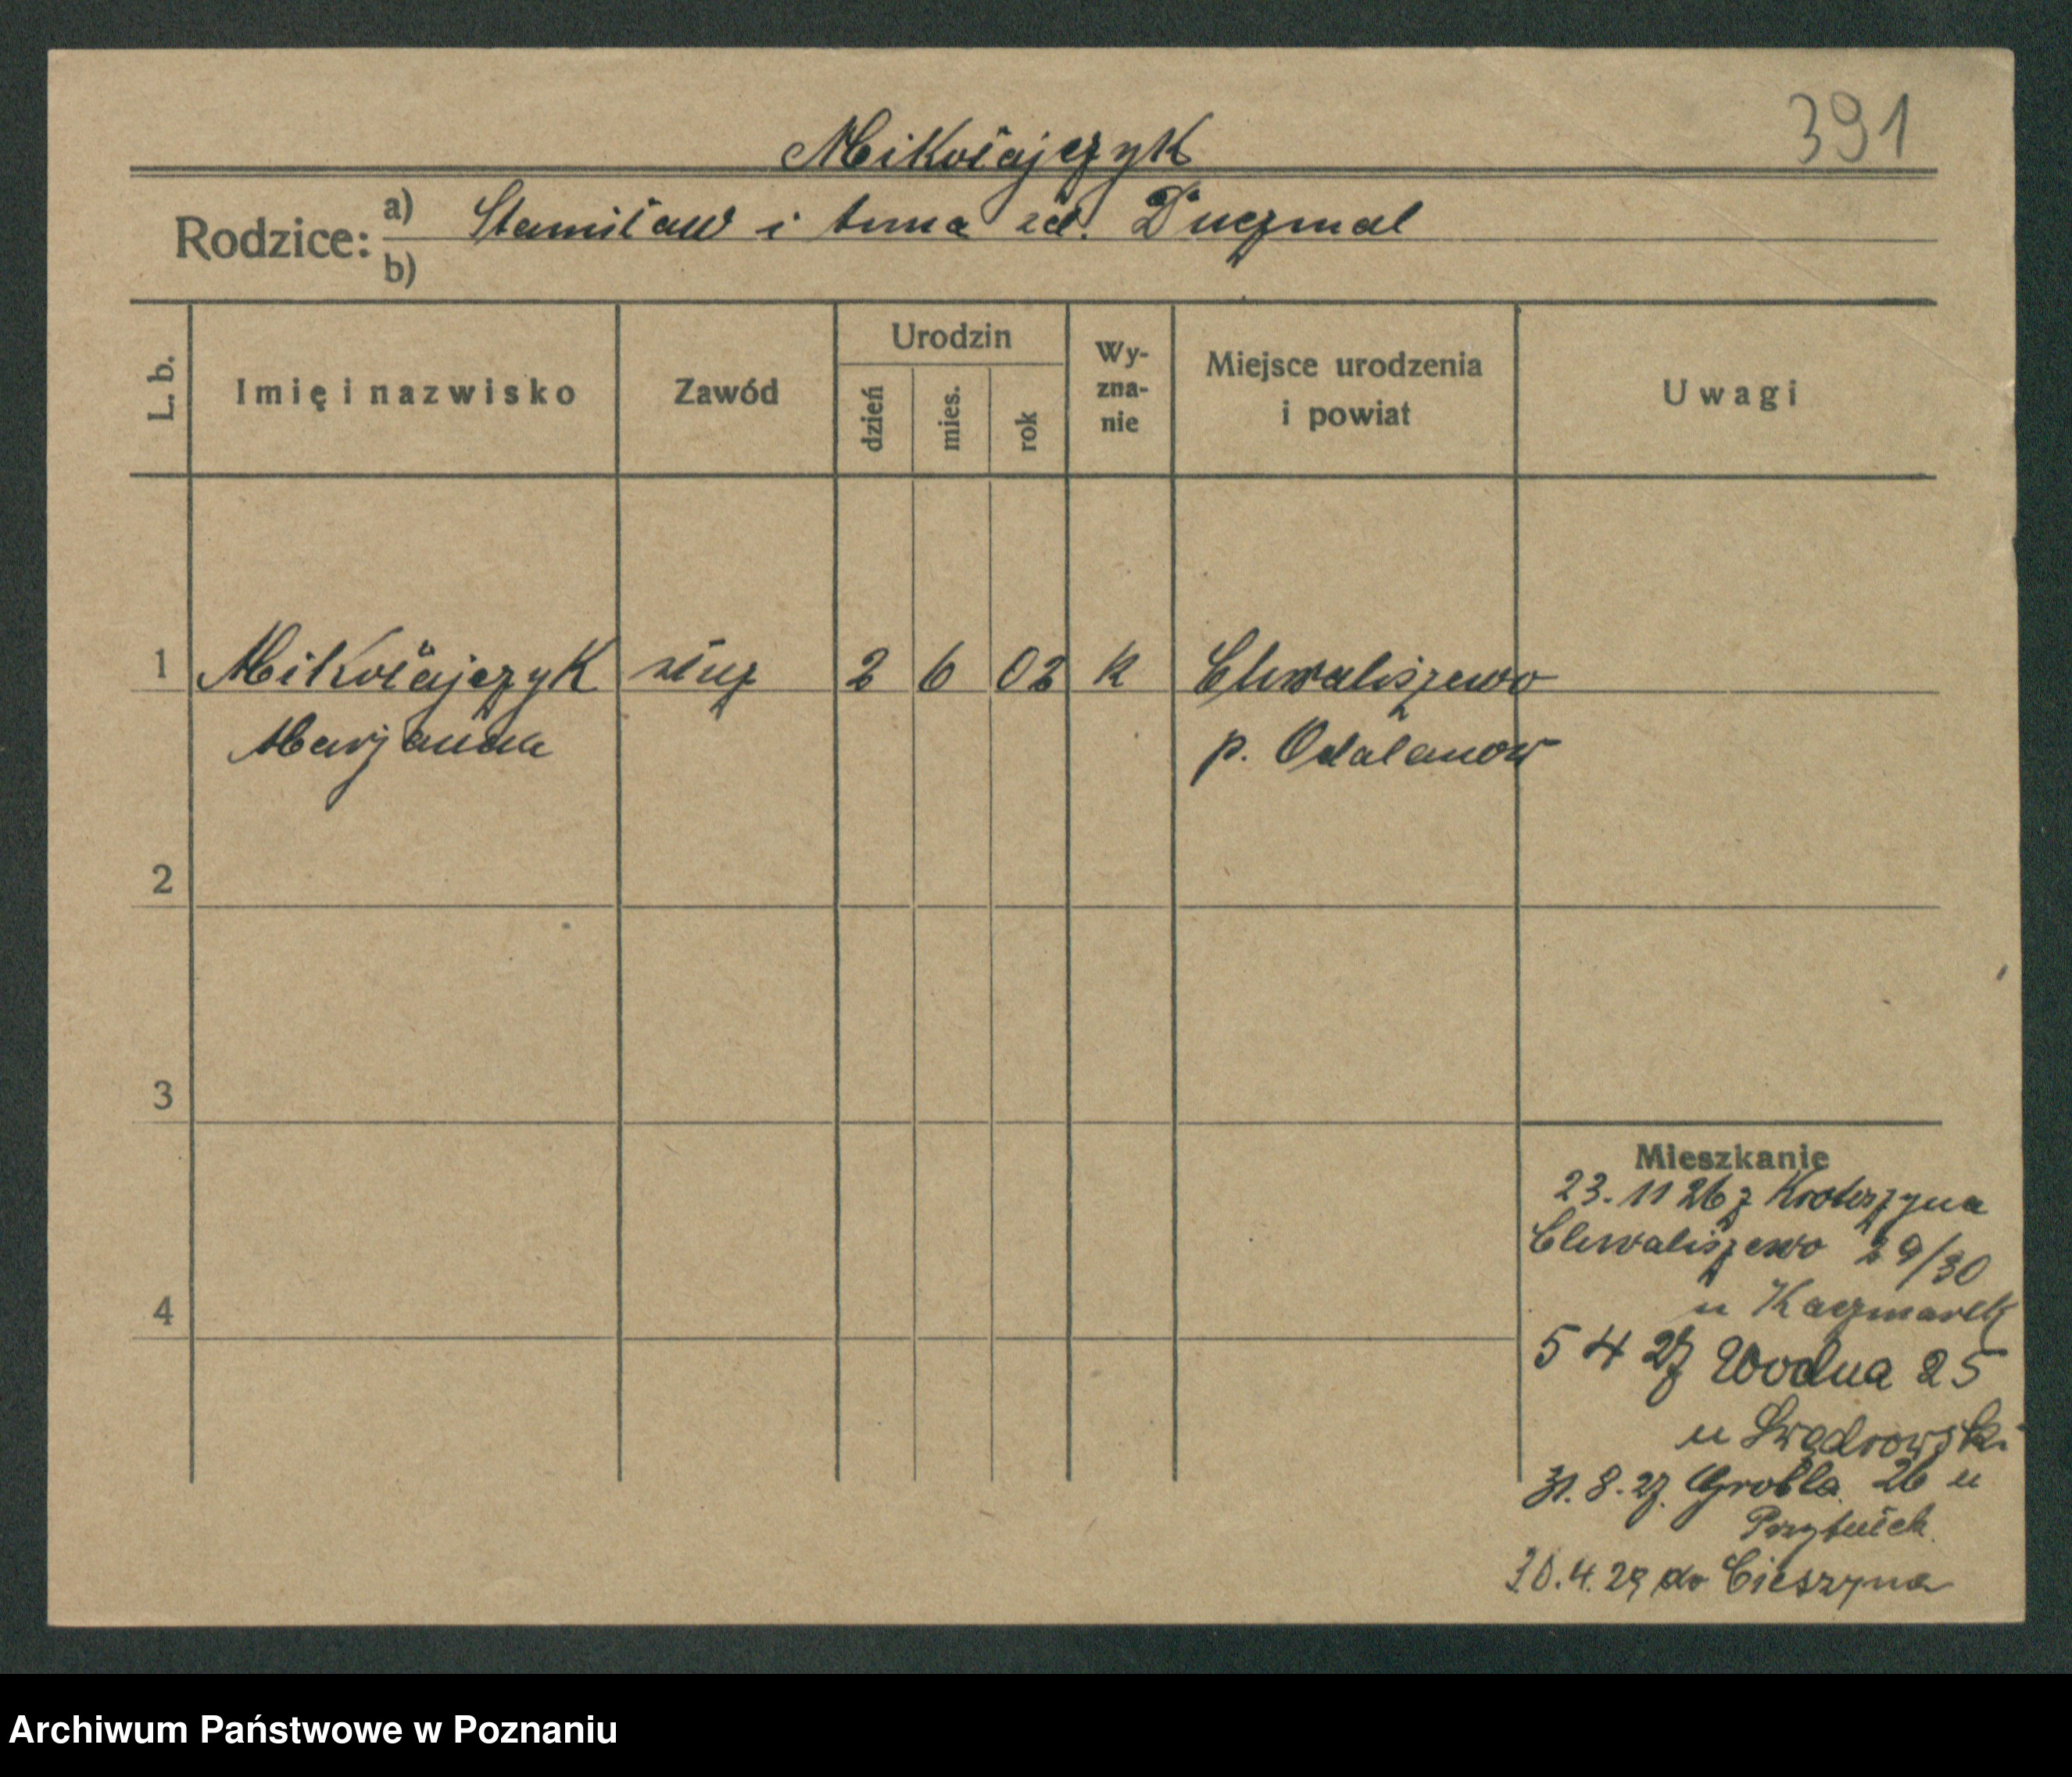 391
Mikołajczyk
Rodzice:
a) Stanisław i Anna zd. Duczmal
b)
L. b. Imię i nazwisko Zawód Urodzin dzień mies. rok Wy-zna-nie Miejsce urodzenia i powiat Uwagi
1 Mikołajczyk służ 2 6 02 k Chwaliszewo
Marjanna p. Odalanow
2
3
4
Mieszkanie
23. 11 26 z Krotoszyna
Chwaliszewo 29/30
u Kaczmarek
5 4 27 Wodna 25
u
31. 8. 27. Grobla 26 u
30. 4. 29 do Cieszyna
Archiwum Państwowe w Poznaniu